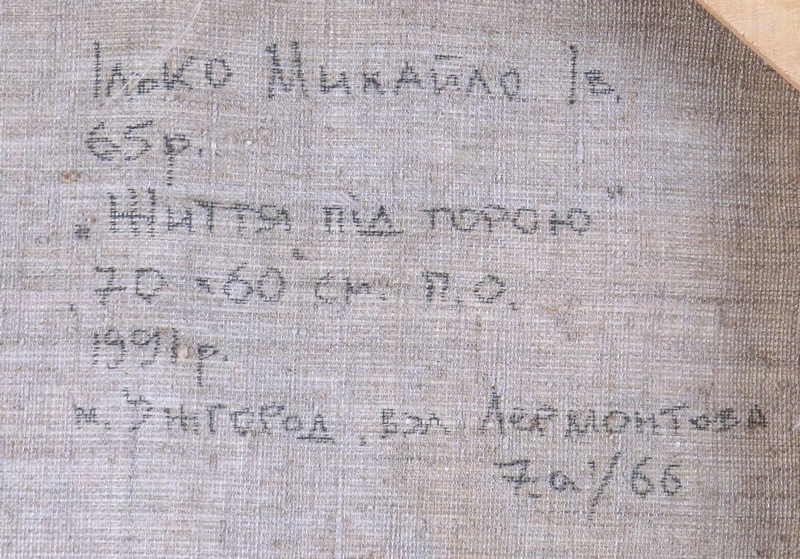 Ілько Михайло Ів.
65р.
„Життя під горою"
70 × 60 см. п.о.
1991р.
м. Ужгород, вул Лермонтова
7 а / 66